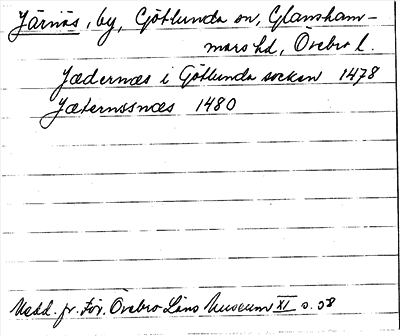 Järnäs, by, Götlunda sn, Glansham-
mars hd, Örebro l.
Jædernæs i Götlunda sockan 1478
Jæternssnæs 1480
Medd. fr. För. Örebro Läns Museum XI s. 58